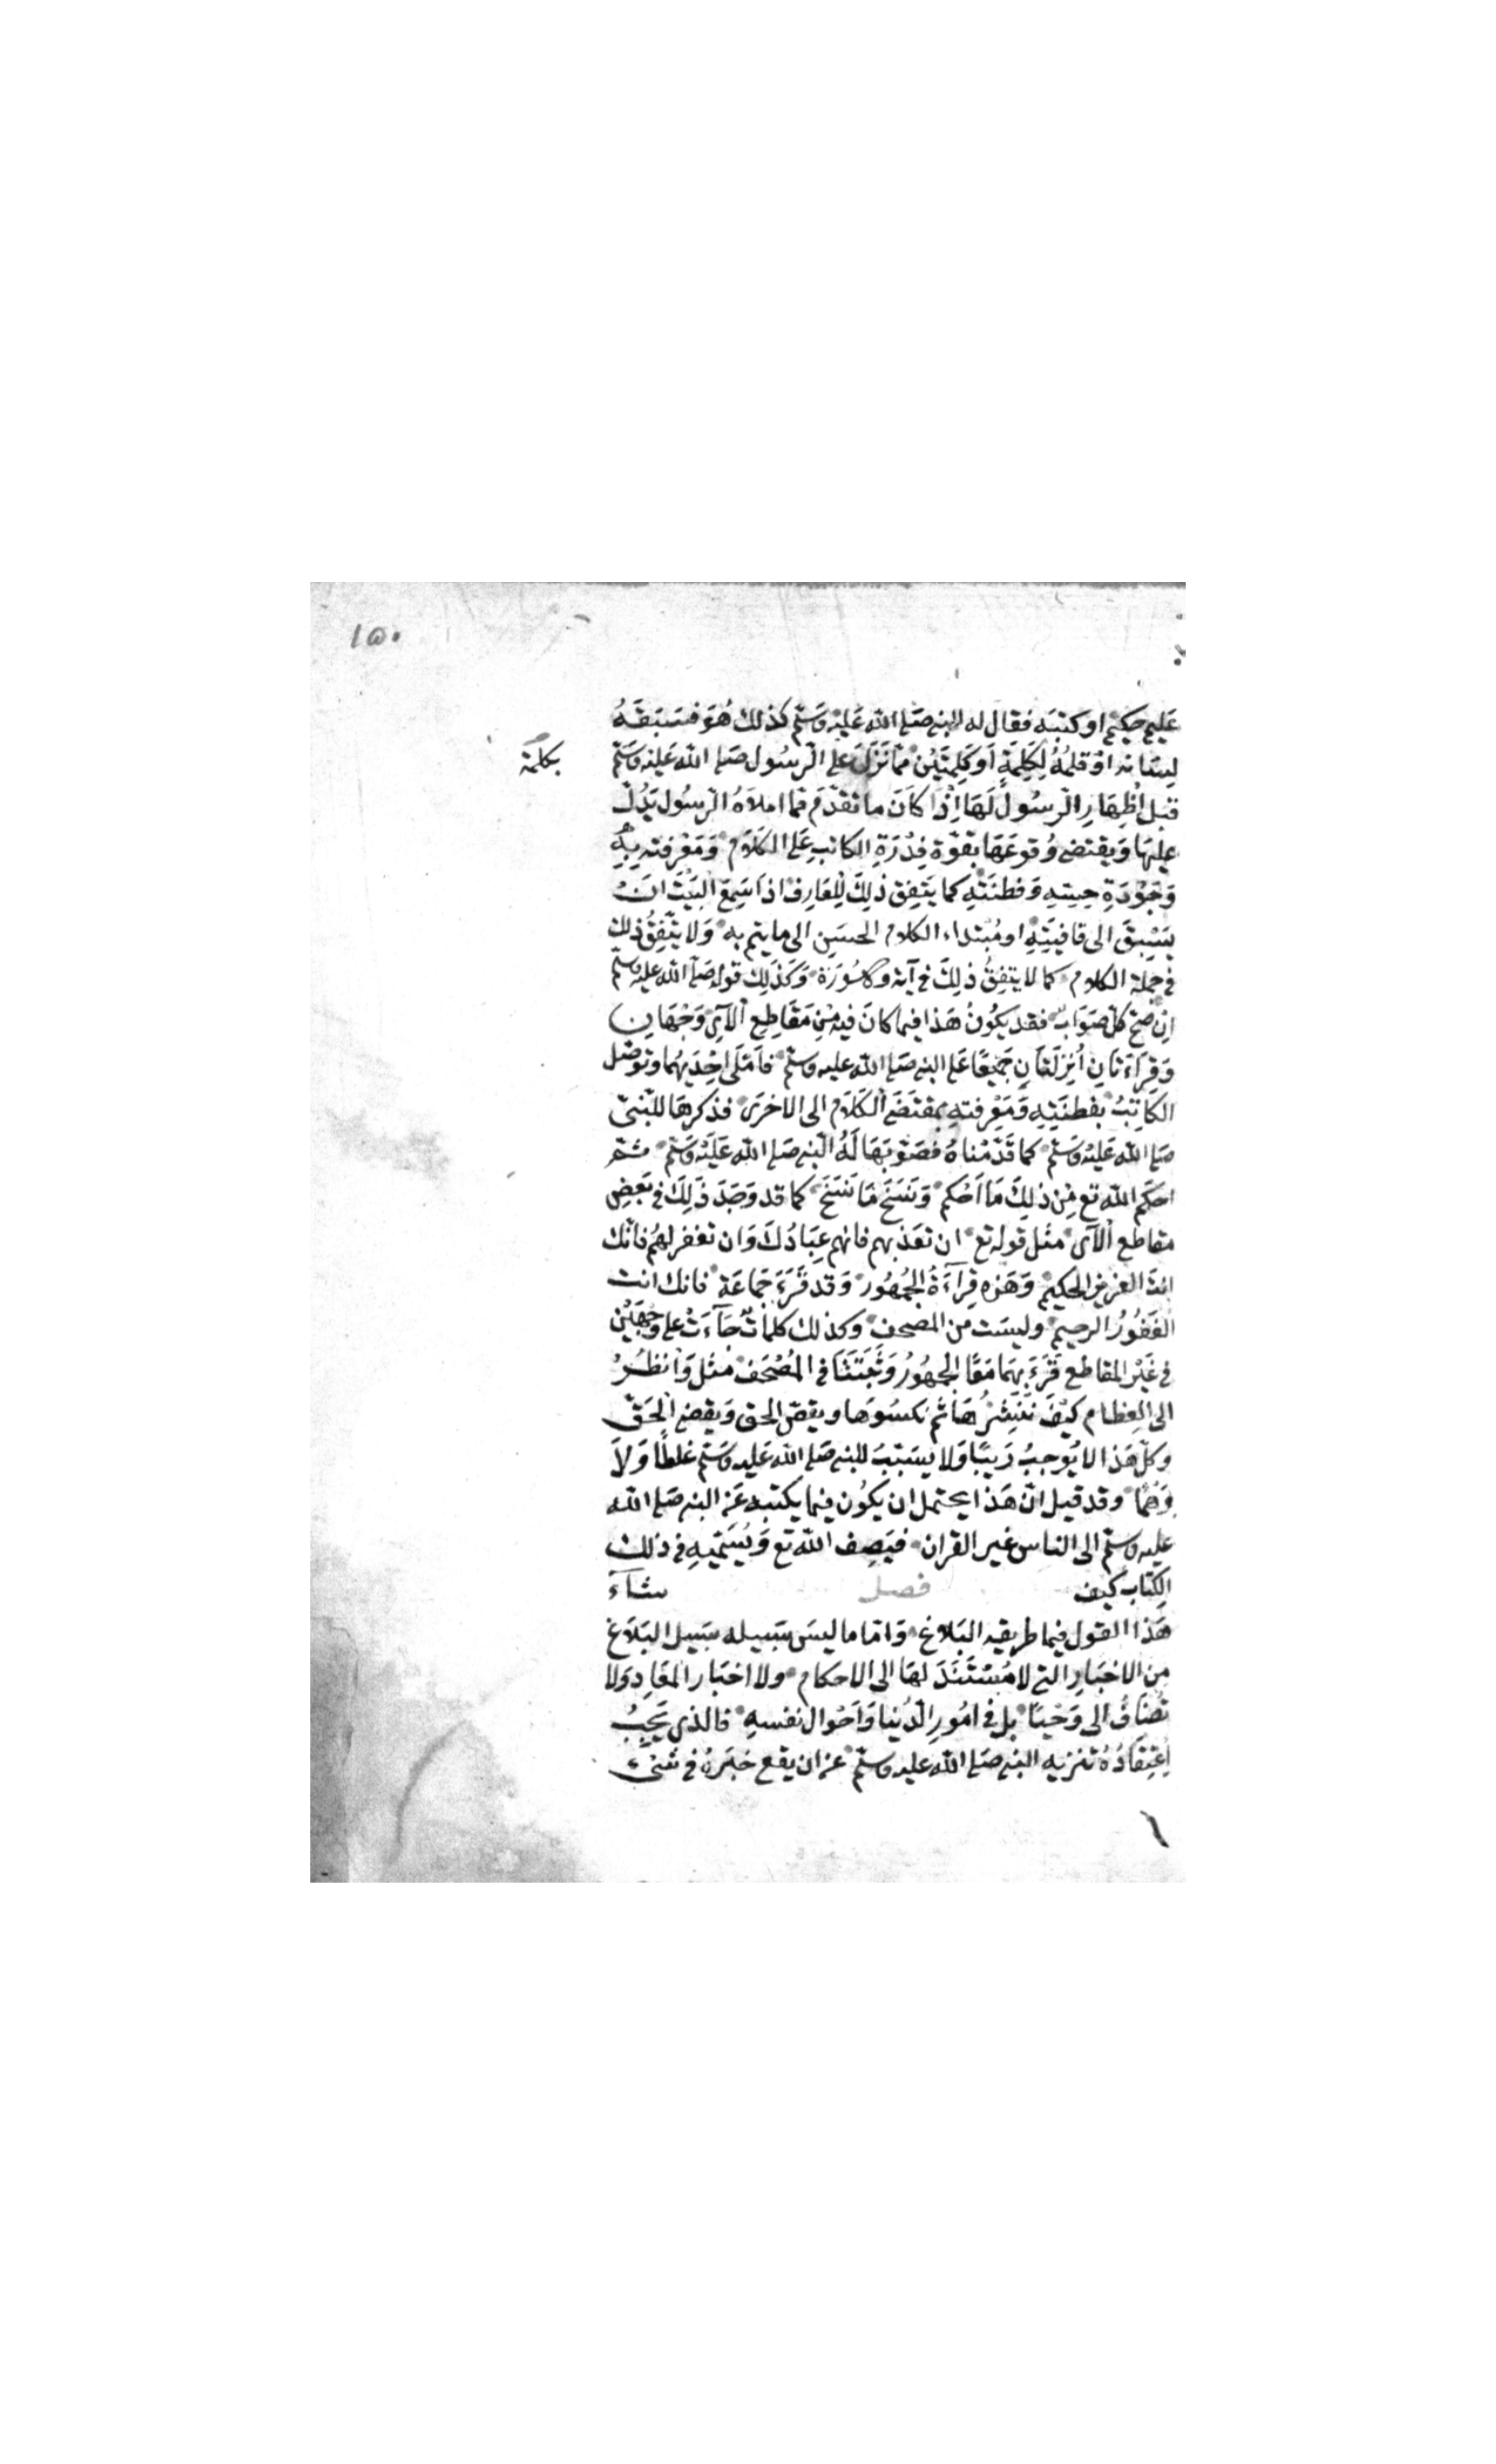 ١٥٠
عَليم حكيم او كتبَه فقال له النبى صَلى الله عَليْه وَسَلم كذلك هُوَ فسَبَقَهُ
لِسَانه اوْ قلمُهُ لِكَلِمَةٍ اَوكَلِمتَيْن ممّا نَزَلَ على الرّسُول صَلى الله عَليْه وَسَلم
بكلمة
قبْل اِظهَارِ الرّسُول لَهَا اِذَا كَانَ ما تقدّم ممّا املاَهُ الرّسُول يَدُلّ
عليْهَا وَيقتضى وُقوعَهَا بقوّة قِدُرَةِ الكاتب عَلى الكَلاَم وَمَعْرفته بِهِ
وَجُوْدَةِ حِسِّهِ وَفطنَتِهِ كما يتفِق ذلِكَ لِلعَارِف اذا سَمِعَ البَيْتَ انَ
يسْبِقَ الى قافيَتِهِ او مُبْتداء الكلام الحسَنِ الى ما يتم به وَلا يَتّفِقُ ذلك
فى جملة الكلام كما لا يتفِقُ ذلِكَ فى آية ولا سُورَة وَكَذلِك قوله صَلى الله عليه وسلم
اِن صَحّ كلّ صَوَابٌ فقد يكُونُ هَذا فيما كانَ فيه مِن مَقَاطِعِ الآىِ وَجْهَانِ
وَقِرَاءَتَانِ اُنزلَتَانِ جَميْعًا عَلى النبى صَلى الله عليه وسلم فاَمْلَى اِحْدَيهُما وتوصّل
الكاتِبُ بفطنَتِهِ وَمَعْرِفتِهِ بمقتضَى الكَلاَم الى الاخرَى فذكرهَا للنّبىّ
صَلى الله عَليْه وَسَلم كما قَدّمْناهُ فصَوّبَهَا لَهُ النّبى صَلى الله عَليْه وَسَلم ثم
احكَم الله تع مِن ذلِكَ مَا اَحْكم وَنَسَخَ مَا نَسَخَ كما قد وَجَدَ ذَلِكَ فى بَعْضِ
مقاطع الآى مثل قوله تع ان تعَذبهم فانهم عِبَادُكَ وَان تغفر لهُم فانّك
انتَ العزيز الحكيم وَهَذه قِرآءَةُ الجُمْهُور وَقد قَرَءَ جَمَاعَة فانك انت
الغَفُورُ الرحيم وليسَت من المصحف وكذلك كلماتٌ جَآءَتْ على وَجهَيْن
فى غَيْر المقاطع قَرَءَ بهمَا مَعًا الجمهُورُ وَثَبَتَتَا فى المُصْحَف مثل وَانْظُرُ
الى العِظام كيْفَ ننشِزُهَا ثم نكسُوَها ويقصّ الحق وَيقضى الحَقّ
وكلّ هَذا لا يُوجبُ رَيبًا وَلا يسَبّبُ للنبى صَلى الله عَليه وَسَلم غلطًا وَلاَ
وَهْمًا وقد قيل انّ هَذا يحتمل ان يكُون فيما يكتبه عَن النبى صَلى الله
عليه وسلم الى الناس غير القران فيَصِف الله تع وَيُسَمّيهِ فى ذلك
الكتاب كيف شآءَ
فصل
هَذا القول فيما طريقه البَلاغ وَامّا ما ليسَ سَبيله سَبيل البَلاَغ
من الاخبَار التى لا مُسْتَنَدَ لهَا الى الاحكام ولا اخبَار المعَادِ وَلا
تُضَافُ الى وَحْيٍ بل فى امُورِ الدّنيا وَاَحْوال نفسِهِ فالذى يَجبُ
اِعْتِقَادُهُ تنزيه النبى صَلى الله عليه وسلم عن ان يقع خبَرهُ فى شَىْء